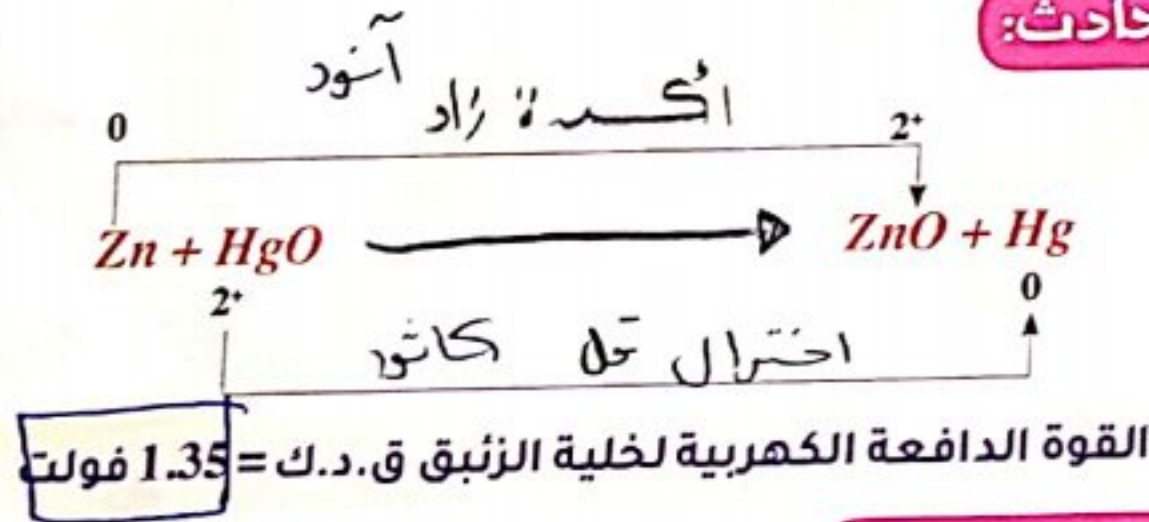 حادث:
آنود
أكسدة زاد
0 2+
Zn + HgO ZnO + Hg
2+ 0
اختزال قل كاثود
القوة الدافعة الكهربية لخلية الزئبق ق.د.ك = 1.35 فولت